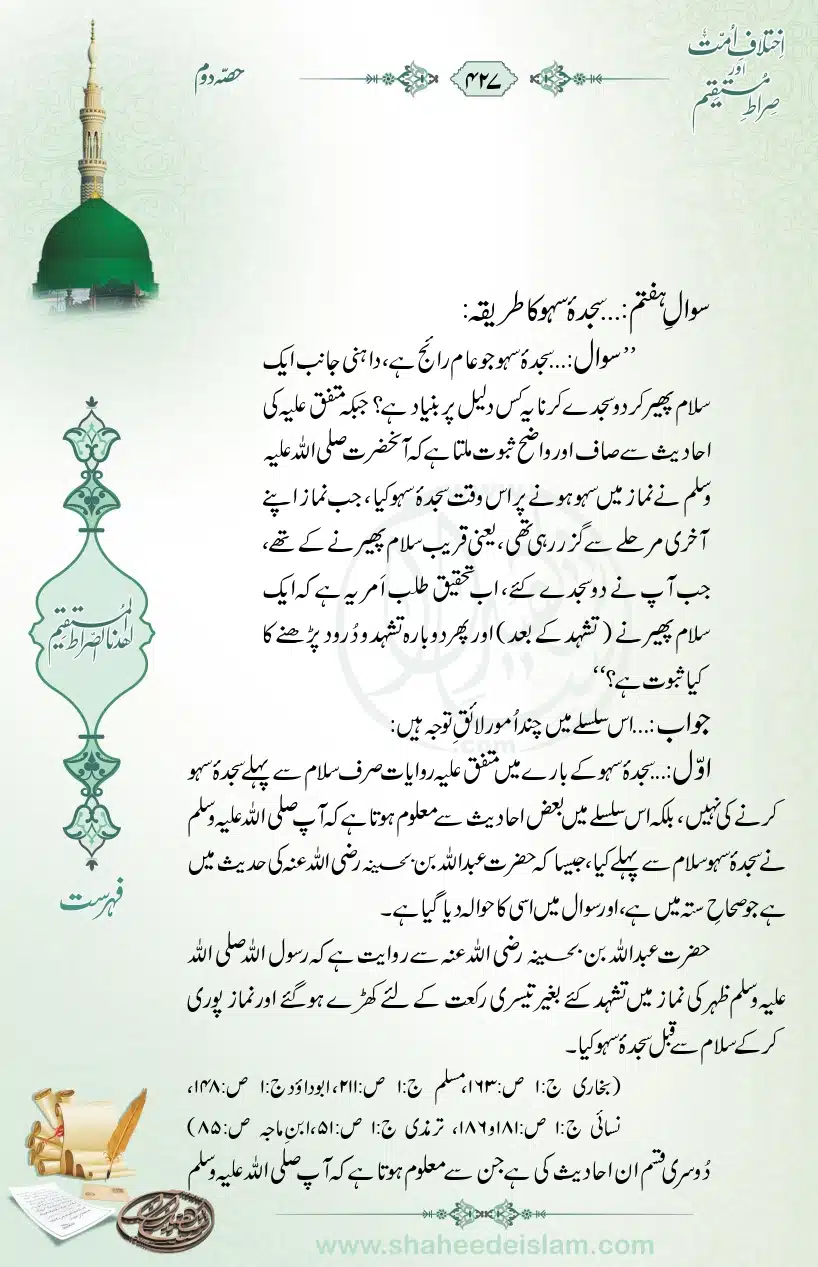 اِختلافِ اُمّت
اور
صِراطِ مُستقیم
۴۲۷
حصّہ دوم
سوالِ ہفتم:…سجدۂ سہو کا طریقہ:
’’سوال:…سجدۂ سہو جو عام رائج ہے، داہنی جانب ایک
سلام پھیر کر دو سجدے کرنا یہ کس دلیل پر بنیاد ہے؟ جبکہ متفق علیہ کی
احادیث سے صاف اور واضح ثبوت ملتا ہے کہ آنحضرت صلی اللہ علیہ
وسلم نے نماز میں سہو ہونے پر اس وقت سجدۂ سہو کیا، جب نماز اپنے
آخری مرحلے سے گزر رہی تھی، یعنی قریب سلام پھیرنے کے تھے،
جب آپ نے دو سجدے کئے، اب تحقیق طلب اَمر یہ ہے کہ ایک
سلام پھیرنے (تشہد کے بعد) اور پھر دوبارہ تشہد و دُرود پڑھنے کا
کیا ثبوت ہے؟‘‘
جواب:…اس سلسلے میں چند اُمور لائقِ توجہ ہیں:
اوّل:…سجدۂ سہو کے بارے میں متفق علیہ روایات صرف سلام سے پہلے سجدۂ سہو
کرنے کی نہیں، بلکہ اس سلسلے میں بعض احادیث سے معلوم ہوتا ہے کہ آپ صلی اللہ علیہ وسلم
نے سجدۂ سہو سلام سے پہلے کیا، جیسا کہ حضرت عبداللہ بن بحسینہ رضی اللہ عنہ کی حدیث میں
ہے جو صحاحِ ستہ میں ہے، اور سوال میں اسی کا حوالہ دیا گیا ہے۔
حضرت عبداللہ بن بحسینہ رضی اللہ عنہ سے روایت ہے کہ رسول اللہ صلی اللہ
علیہ وسلم ظہر کی نماز میں تشہد کئے بغیر تیسری رکعت کے لئے کھڑے ہوگئے اور نماز پوری
کرکے سلام سے قبل سجدۂ سہو کیا۔
(بخاری ج:۱ ص:۱۶۳، مسلم ج:۱ ص:۲۱۱، ابوداؤد ج:۱ ص:۱۴۸،
نسائی ج:۱ ص:۱۸۱ و ۱۸۶، ترمذی ج:۱ ص:۵۱، ابنِ ماجہ ص:۸۵)
دُوسری قسم ان احادیث کی ہے جن سے معلوم ہوتا ہے کہ آپ صلی اللہ علیہ وسلم
اهدنا الصّراط المُستقیم
فہرست
www.shaheedeislam.com